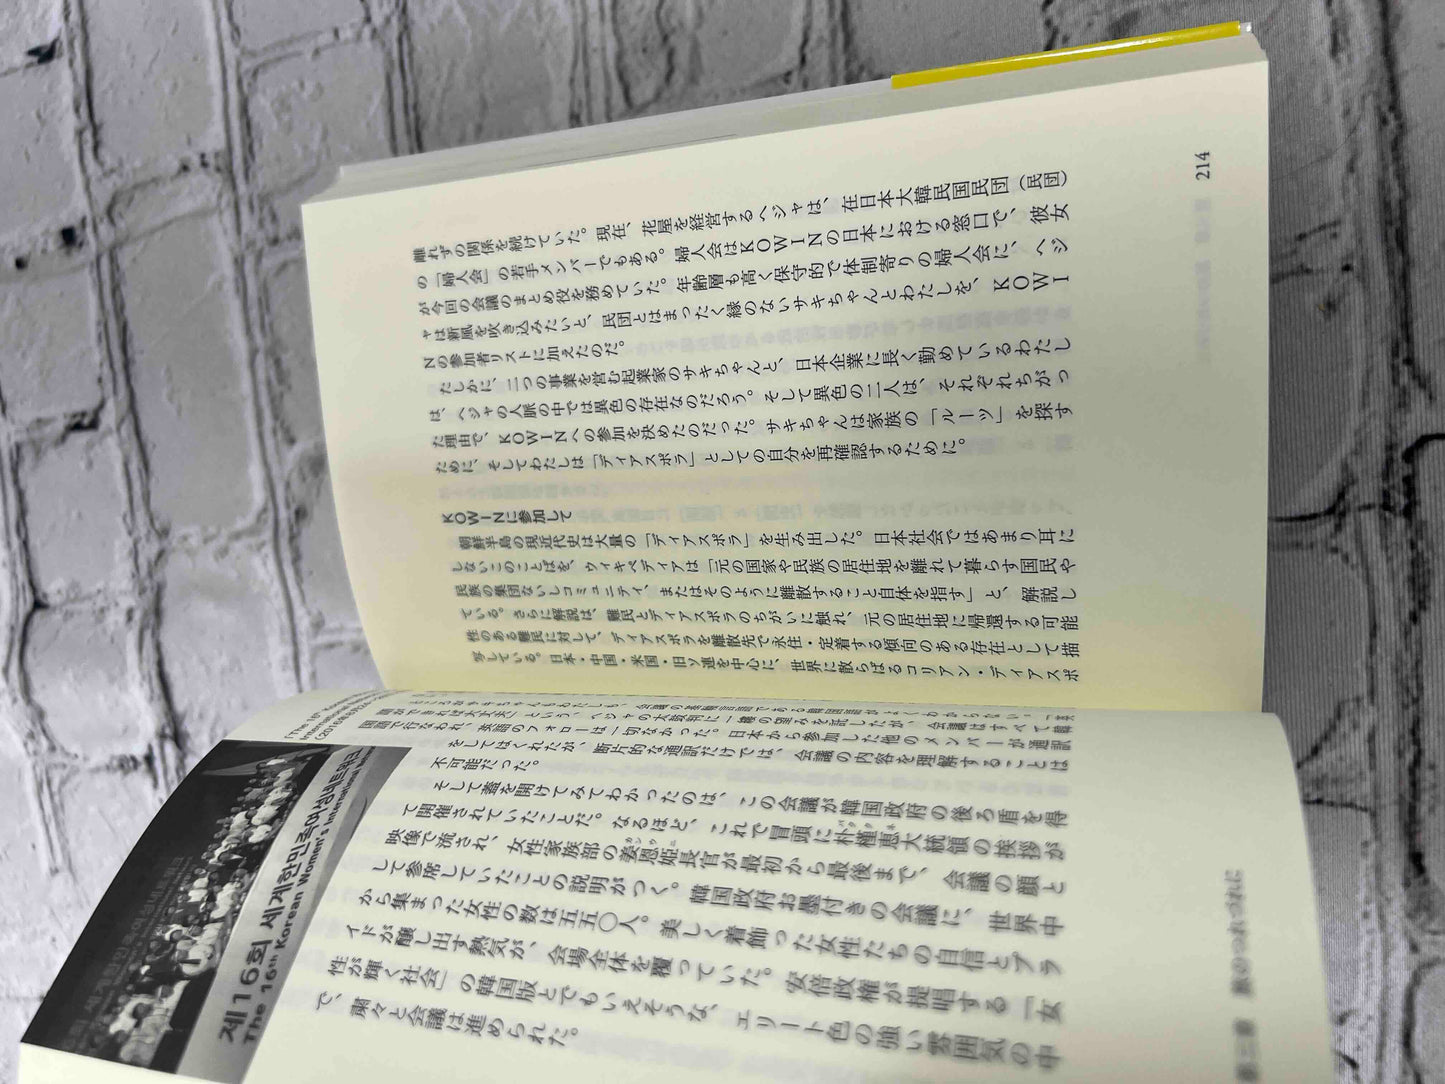 214
離れずの関係を続けていた。現在、花屋を経営するヘジャは、在日本大韓民国民団（民団）
の「婦人会」の若手メンバーでもある。婦人会はKOWINの日本における窓口で、彼女
が今回の会議のまとめ役を務めていた。年齢層も高く保守的で体制寄りの婦人会に、ヘジ
ャは新風を吹き込みたいと、民団とはまったく縁のないサキちゃんとわたしを、KOWI
Nの参加者リストに加えたのだ。
たしかに、二つの事業を営む起業家のサキちゃんと、日本企業に長く勤めているわたし
は、ヘジャの人脈の中では異色の存在なのだろう。そして異色の二人は、それぞれちがっ
た理由で、KOWINへの参加を決めたのだった。サキちゃんは家族の「ルーツ」を探す
ために、そしてわたしは「ディアスポラ」としての自分を再確認するために。
KOWINに参加して
朝鮮半島の現近代史は大量の「ディアスポラ」を生み出した。日本社会ではあまり耳に
しないこのことばを、ウィキペディアは「元の国家や民族の居住地を離れて暮らす国民や
民族の集団ないしコミュニティ、またはそのように離散すること自体を指す」と、解説し
ている。さらに解説は、難民とディアスポラのちがいに触れ、元の居住地に帰還する可能
性のある難民に対して、ディアスポラを離散先で永住・定着する傾向のある存在として描
写している。日本・中国・米国・旧ソ連を中心に、世界に散らばるコリアン・ディアスポ
「The 16th Korean
International
会議の主要言語である韓国語がよくわからない。「英
語ができれば大丈夫」という、ヘジャの大鼓判に一縷の望みを託したが、会議はすべて韓
国語で行なわれ、英語のフォローは一切なかった。日本から参加した他のメンバーが通訳
をしてはくれたが、断片的な通訳だけでは、会議の内容を理解することは
不可能だった。
そして蓋を開けてみてわかったのは、この会議が韓国政府の後ろ盾を得
て開催されていたことだ。なるほど、これで冒頭に朴槿恵大統領の挨拶が
映像で流され、女性家族部の姜恩姫長官が最初から最後まで、会議の顔と
して参席していたことの説明がつく。韓国政府お墨付きの会議に、世界中
から集まった女性の数は五五〇人。美しく着飾った女性たちの自信とプラ
イドが醸し出す熱気が、会場全体を覆っていた。安倍政権が提唱する「女
性が輝く社会」の韓国版とでもいえそうな、エリート色の強い雰囲気の中
で、粛々と会議は進められた。
제16회 세계한민족여성네트워크
The 16th Korean Women's International Network
第三章 旅のつれづれに